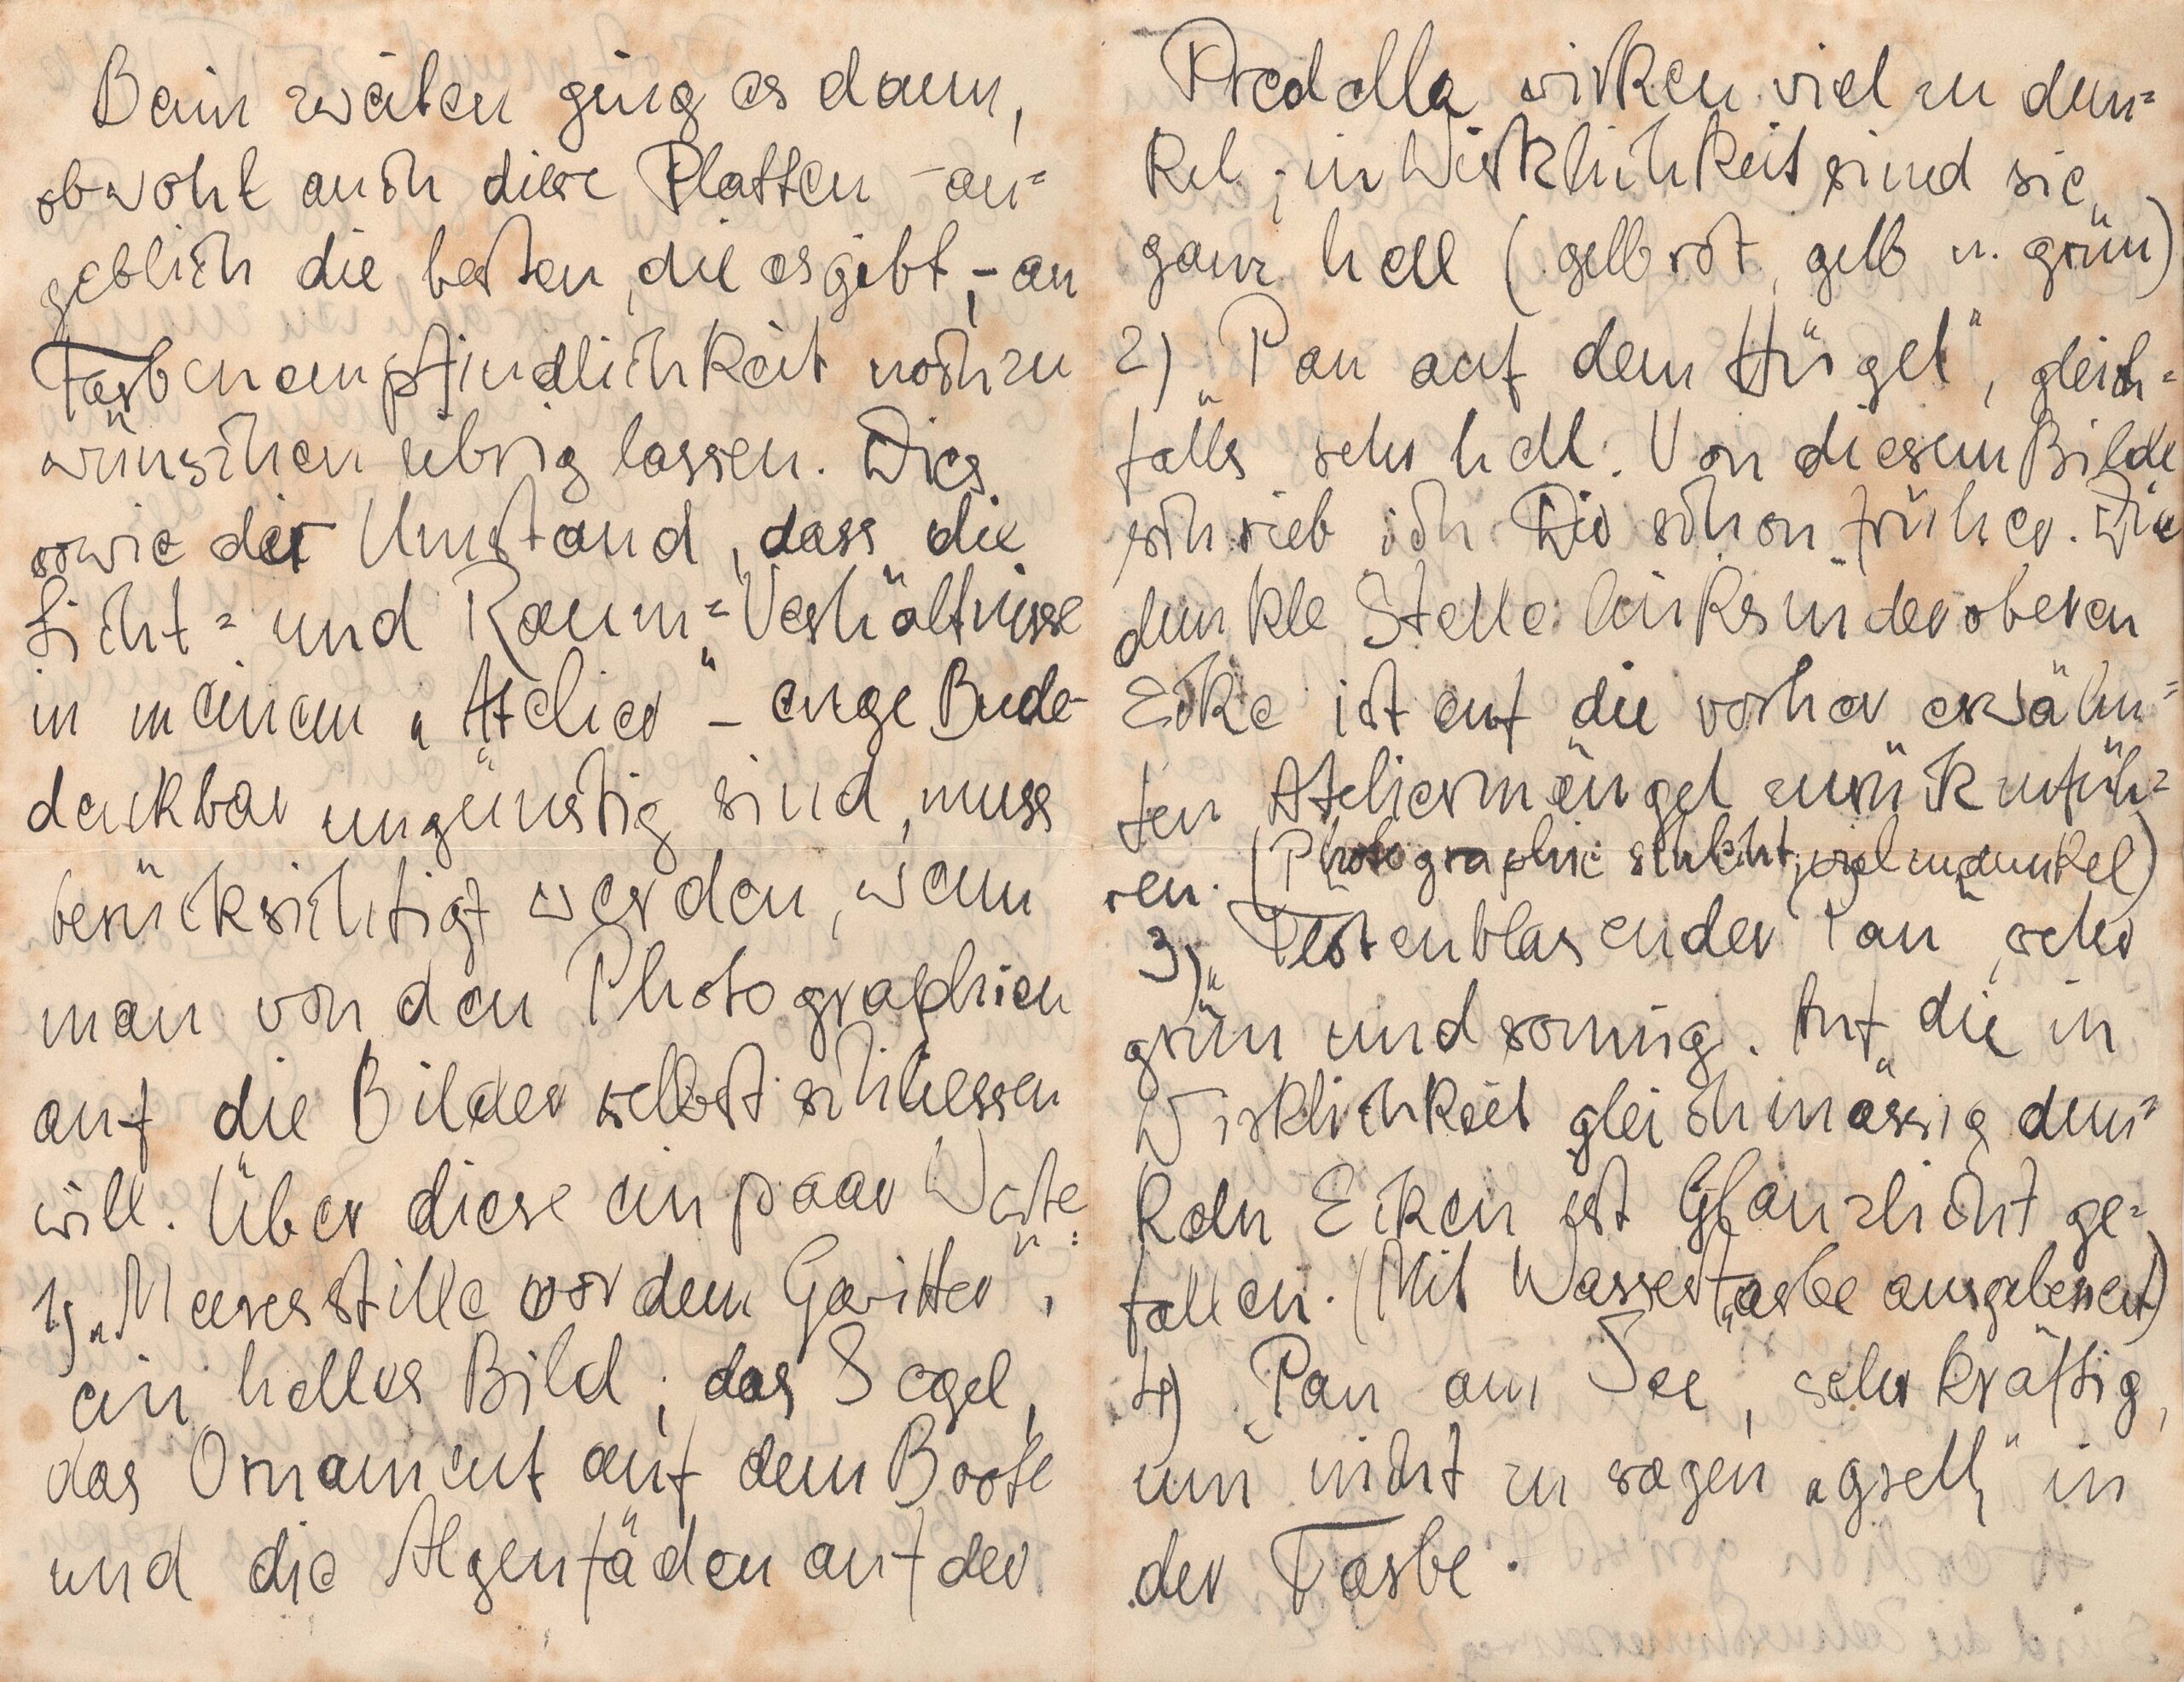 Beim zweiten ging es dann,
obwohl auch diese Platten – an=
geblich die besten, die es gibt, – an
Farbenempfindlichkeit noch zu
wünschen übrig lassen. Dies
sowie der Umstand, dass die
Licht= und Raum=Verhältnisse
in meinem „Atelier“ – enge Bude –
denkbar ungünstig sind, muss
berücksichtigt werden, wenn
man von den Photographien
auf die Bilder selbst schliessen
will. Über diese ein paar Worte:
1) „Meeresstille vor dem Gewitter“,
ein helles Bild; das Segel,
das Ornament auf dem Boote
und die Algenfäden auf der
Predella wirken viel zu dun=
kel; in Wirklichkeit sind sie
ganz hell (gelbrot, gelb u. grün)
2) „Pan auf dem Hügel“, gleich=
falls sehr hell. Von diesem Bilde
schrieb ich Dir schon früher. Die
dunkle Stelle links in der oberen
Ecke ist auf die vorher erwähn=
ten Ateliermängel zurückzufüh=
ren. (Photographie schlecht, viel zu dunkel)
3) „Flötenblasender Pan“, sehr
grün und sonnig. Auf die in
Wirklichkeit gleichmässig dun=
keln Ecken ist Glanzlicht ge=
fallen. (Mit Wasserfarbe ausgebessert)
4) „Pan am See“, sehr kräftig,
um nicht zu sagen „grell“, in
der Farbe.